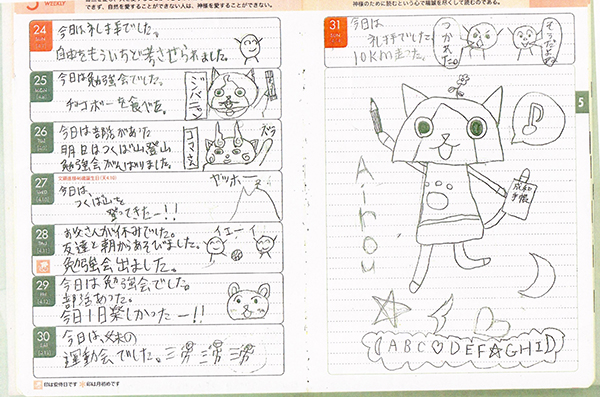 5 WEEKLY
できず、自然を愛することができない人は、神様を愛することができない。
24
今日は礼拝でした。
自由をもういちど考させられました。
25
今日は勉強会でした。
チョコボーを食べた。
ジバニャン
26
今日は部活があった
明日はつくば山登山
勉強会がんばりました。
コマさん
ズラ
27
今日は、
つくば山を
登ってきたー!!
ヤッホー
28
お父さんが休みでした。
友達と朝からあそびました。
勉強会出ました。
イエーイ
29
今日は勉強会でした。
部活あった。
今日1日楽しかったー!!
30
今日は、妹の
運動会でした。
印は安待日です
印は月初めです
神様のために読むという心で精誠を尽くして読むのである。
31
今日は
礼拝でした。
10km走った。
つかれた。
そうだよね
5
Ainou
手帳
ABC DEF GHI